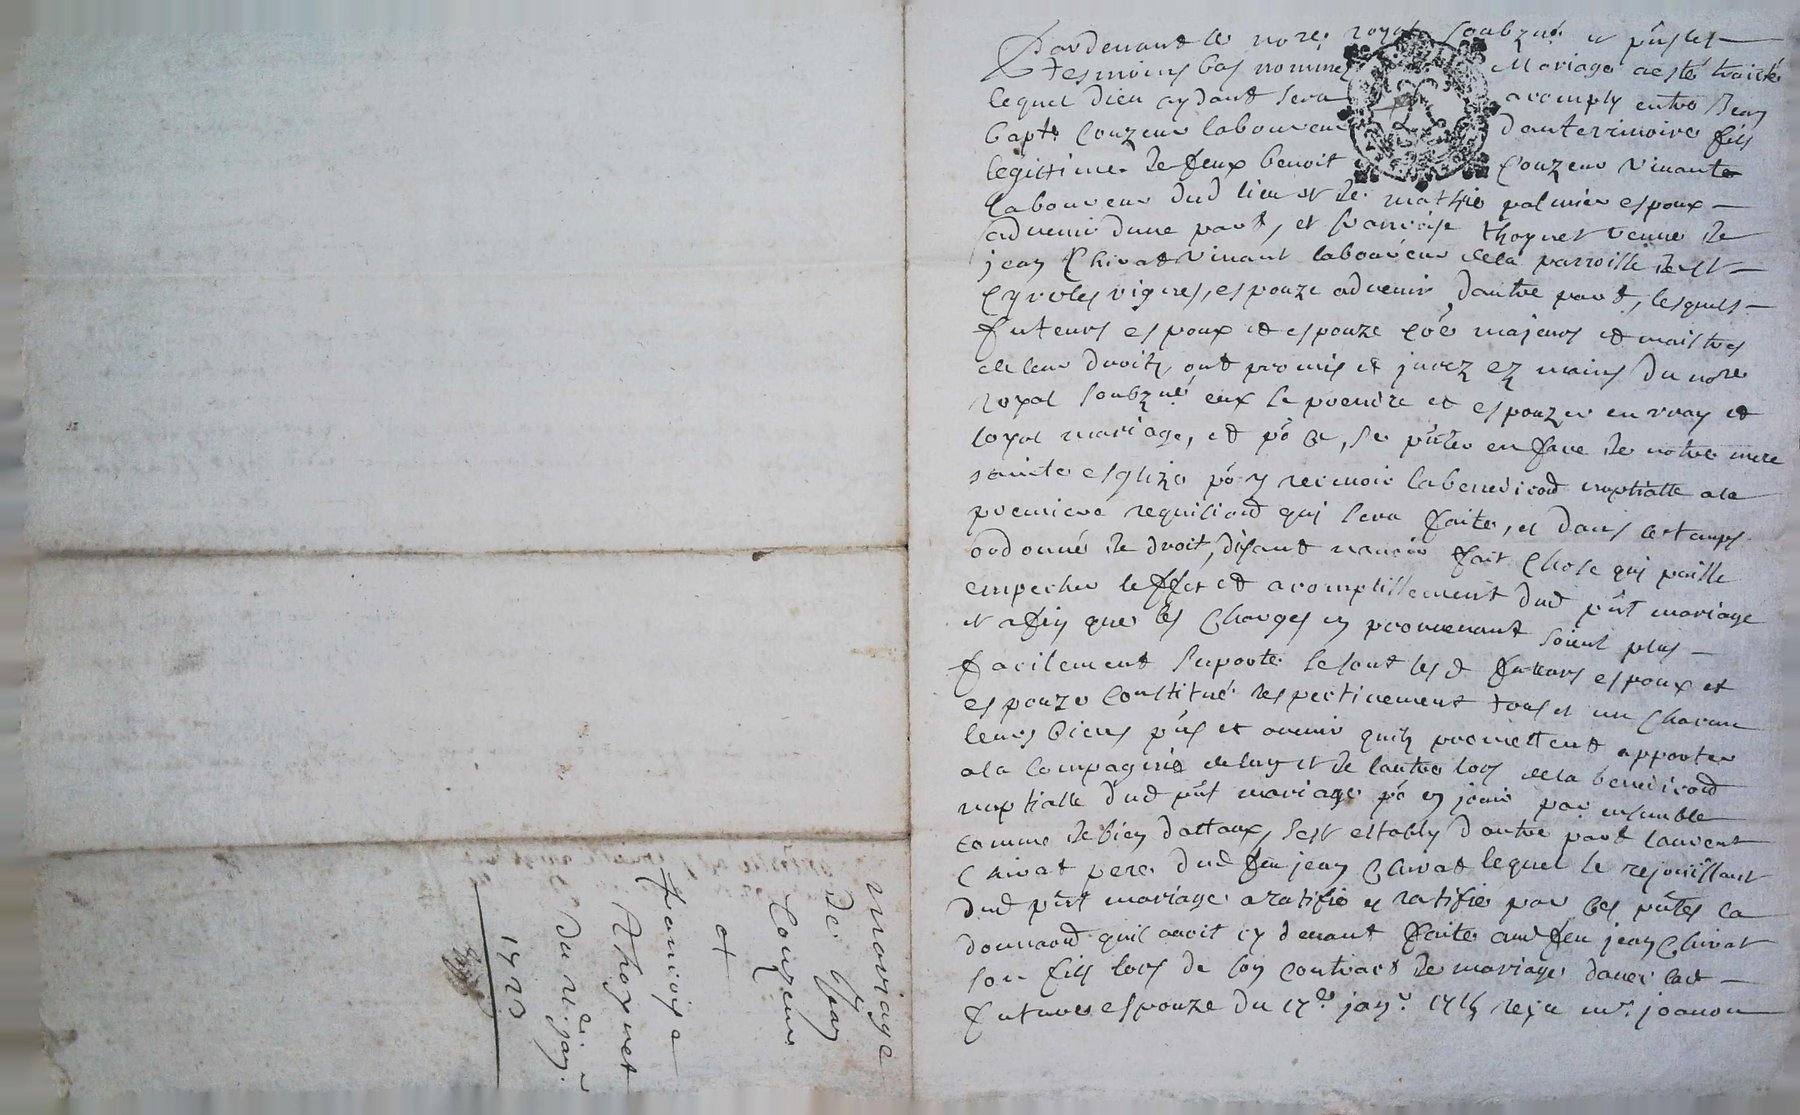 Pardevant le nore royal soubzné et pñts les
tesmoins bas nommes Mariage a esté traicté
lequel dieu aydant sera acomply entre Jean
bapte Couzeur laboureur dauterimoire fils
legittime de feux benoit Couzeur vivante
laboureur dud lieu et de mathie palmier espoux
advenir dune part, et francoise thoynet veuve de
jean Chirat vivant laboureur de la parroisse de st
Cyr les vignes, espouze advenir dautre part, lesquels
futeurs espoux et espouze coe majeurs et maistres
de leur droits, ont promis et jurez ez mains du nore
royal soubzné eux se prendre et espouzer en vray et
loyal mariage, et po ce, se pñter en face de notre mere
sainte esglize po y recevoir la benediond nuptialle a la
premiere requisiond qui sera faite, et dans le temps
ordonné de droit, disant navoir fait Chose qui puisse
empecher leffet et acomplissement dud pñt mariage
et afin que les Charges en provenant soient plus
facilement suporté se sont les d futeurs espoux et
espouze constitué respectivement tous et un Chacun
leurs biens pñs et avenir quils promettent apporter
a la compagnie de luy et de lautre lors de la benediond
nuptialle dud pñt mariage po en jouir par ensemble
comme de bien dottaux, sest estably dautre part laurent
Chirat pere dud feu jean Chirat lequel se rejouissant
dud pñt mariage a ratifié et ratifie par ces pñtes la
donnaond quil avoit cy devant faite aud feu jean Chirat
son fils lors de son contract de mariage avec lad
future espouze du 17e janr 1715 reçu mr joanon
mariage
de Jean
Couzeur
et
francoise
thoynet
du 21e janr
1723